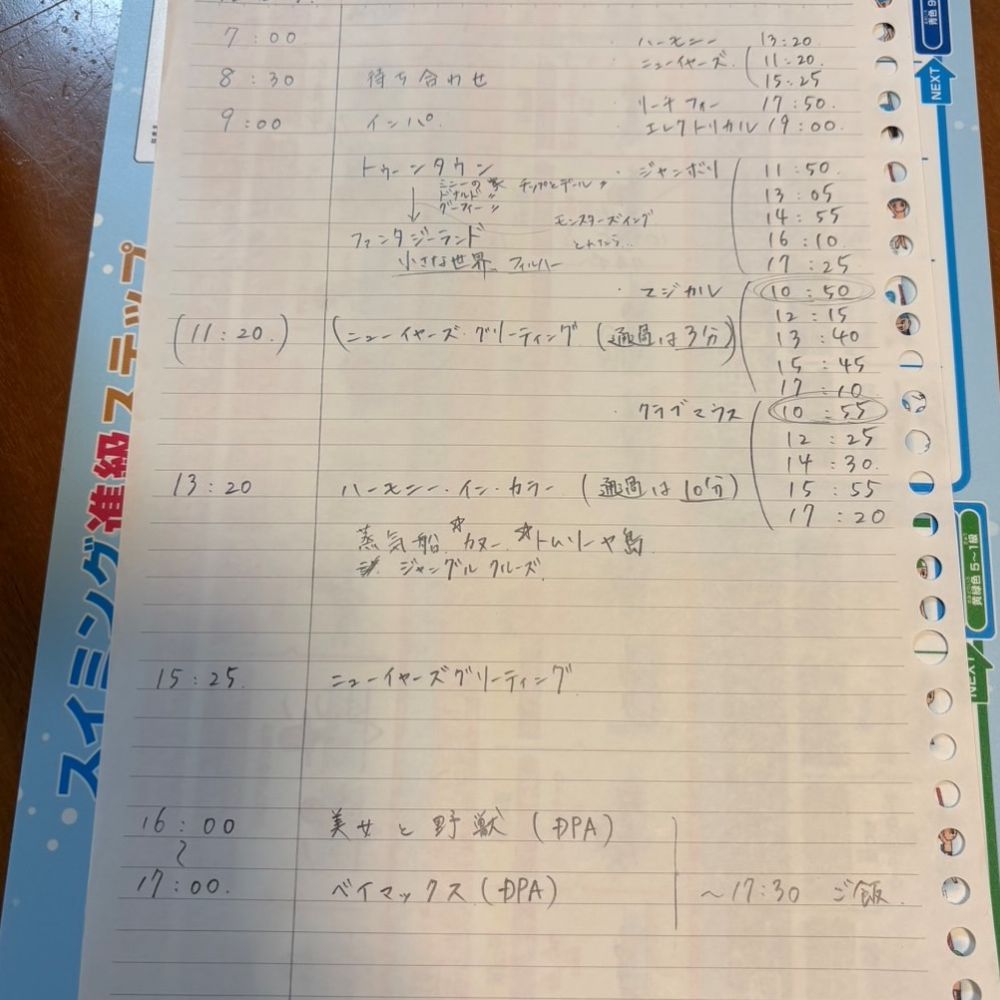 7:00
8:30 待ち合わせ
9:00 インパ
・ハーモニー 13:20
・ニューイヤーズ 11:20
15:25
・リーチフォー 17:50
・エレクトリカル 19:00
トゥーンタウン
ミニーの家 チップとデール〃
ドナルド〃
グーフィー〃
モンスターズインク
ファンタジーランド
小さな世界 フィルハー
・ジャンボリ 11:50
13:05
14:55
16:10
17:25
・マジカル 10:50
12:15
13:40
15:45
17:10
(11:20) (ニューイヤーズ・グリーティング (通過は3分)
・クラブマウス 10:55
12:25
14:30
15:55
17:20
13:20 ハーモニー・イン・カラー (通過は10分)
蒸気船 ☆カヌー ☆トムソーヤ島
ジャングルクルーズ
15:25 ニューイヤーズグリーティング
16:00 美女と野獣 (DPA)
〜
17:00 ベイマックス (DPA)
〜17:30 ご飯
スイミング准級ステップ
NEXT
青色
黄緑色 5〜1級
NEXT